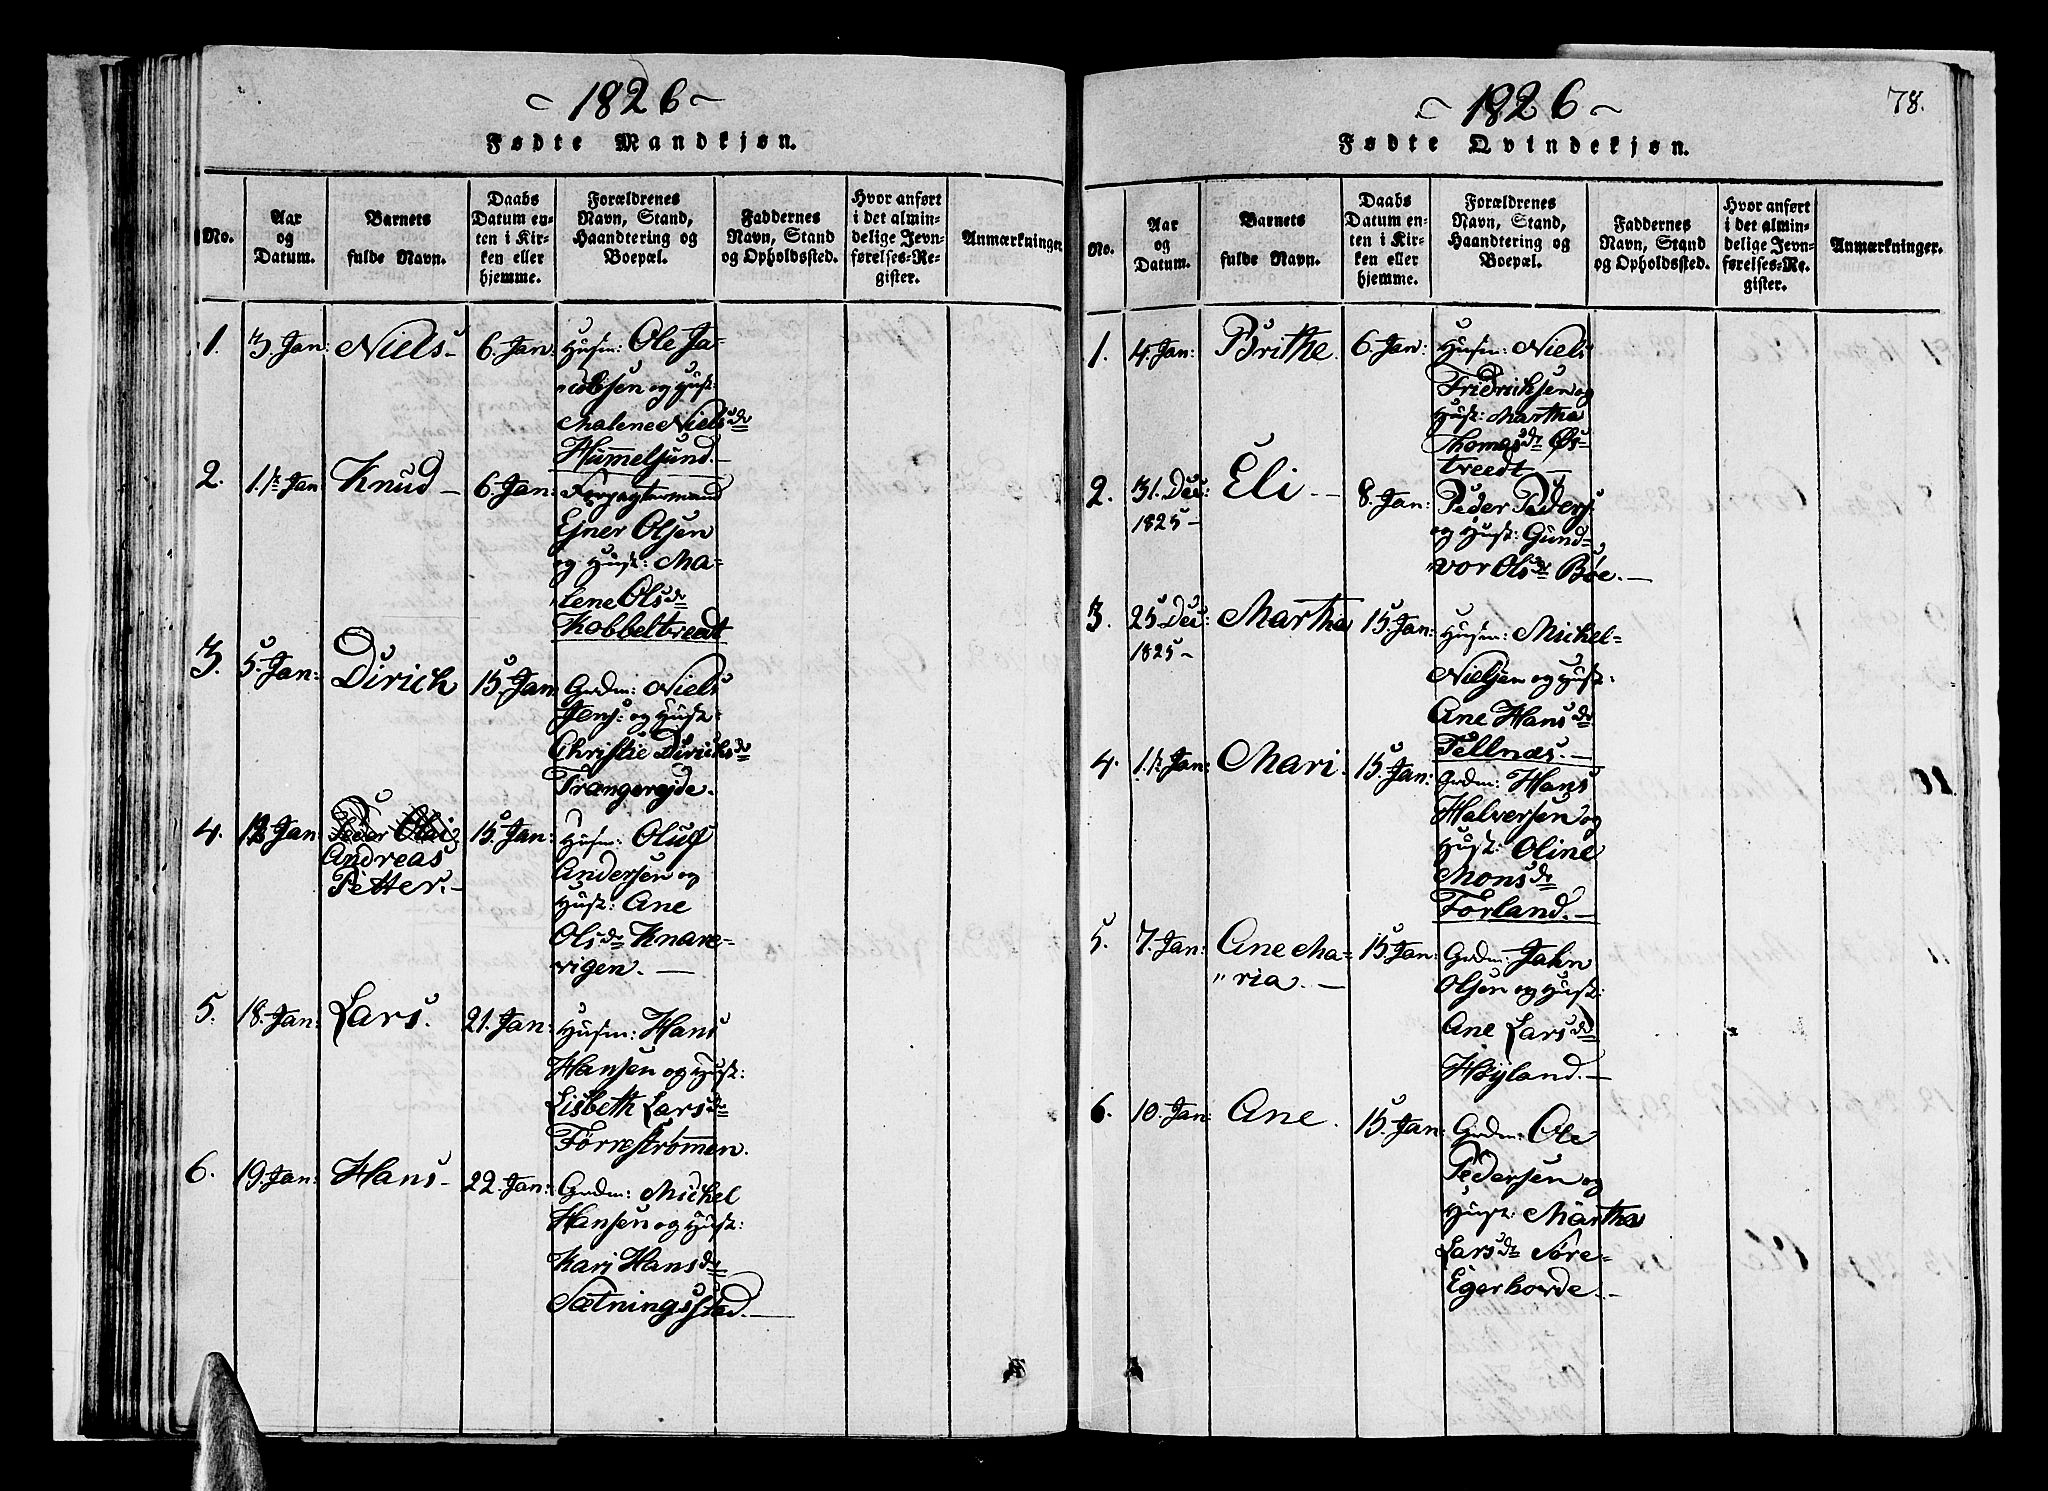 1826
Fødte Mandkjøn.
No.
Aar
og
Datum.
Barnets
fulde Navn.
Daabs
Datum en-
ten i Kir-
ken eller
hjemme.
Forældrenes
Navn, Stand,
Haandtering og
Boepæl.
Faddernes
Navn, Stand
og Opholdssted.
Hvor anført
i det almin-
delige Jevn-
førelses-Re-
gister.
Anmærkninger.
1. 3 Jan: Niels 6. Jan: Husm: Ole Ja-
cobsen og Hust:
Malene Nielsdr
Hummelsund.
2. 1. Jan Knud 6. Jan: Forpagtermand
Ejner Olsen
og Hust: Ma-
lene Olsdr
Kobbeltvedt
3. 5. Jan: Dirich 15. Jan Grdm: Niels
Jens: og Hust:
Christie Dirichsdr
Trængerejde.
4. 12 Jan: Peder Olai 15. Jan: Husm: Oluf
Andreas
Petter.
Andersen og
Hust: Ane
Olsdr Knare-
vigen.
5. 18. Jan: Lars. 21. Jan: Husm: Hans
Hansen og Hust:
Lisbeth Larsdr
Førrestrømmen.
6. 19. Jan: Hans 22. Jan: Grdm: Michel
Hansen og Hust:
Kari Hansdr
Sætningsstad.
1826
78.
Fødte Qvindekjøn.
No.
Aar
og
Datum.
Barnets
fulde Navn.
Daabs
Datum en-
ten i Kir-
ken eller
hjemme.
Forældrenes
Navn, Stand,
Haandtering og
Boepæl.
Faddernes
Navn, Stand
og Opholdssted.
Hvor anført
i det almin-
delige Jevn-
førelses-Re-
gister.
Anmærkninger.
1. 4. Jan: Brithe. 6. Jan: Husm: Niels
Fridrichsen og
Hust: Martha
Thomasdr Øs-
treedt
2. 31. Dec: Eli 8. Jan: Peder Peders:
1825
og Hust: Gund-
vor Olsdr Bøe.
3. 25 Dec: Martha 15. Jan: Husm: Michel
1825
Nielsen og Hust:
Ane Hansdr
Tellnæs.
4. 1. Jan: Mari. 15. Jan: Grdm: Hans
Halversen og
Hust: Oline
Monsdr
Forland.
5. 7. Jan: Ane Ma- 15. Jan: Grdm: Jahn
ria.
Olsen og Hust:
Ane Larsdr
Høyland.
6. 10. Jan: Ane. 15. Jan: Grdm: Ole
Pedersen og
Hust: Martha
Larsdr Søre-
Egerhovde.